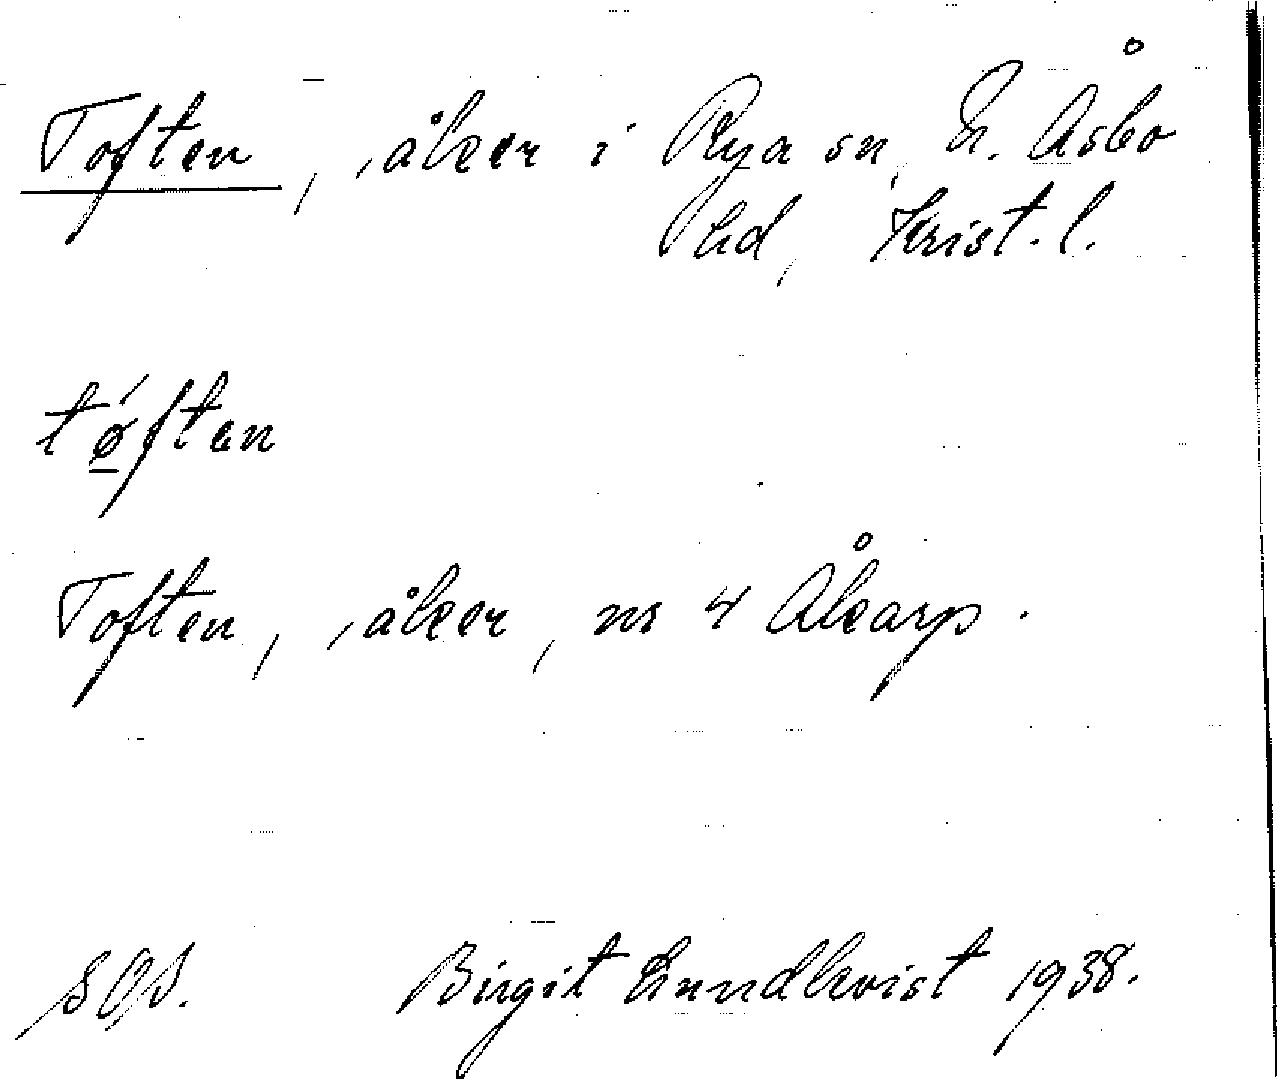 Toften, åker i Rya sn, N. Åsbo
hd, Krist. l.
tǿ̱ften
Toften, åker, nr 4 Åkarp.
SOS. Birgit Lundkvist 1938.